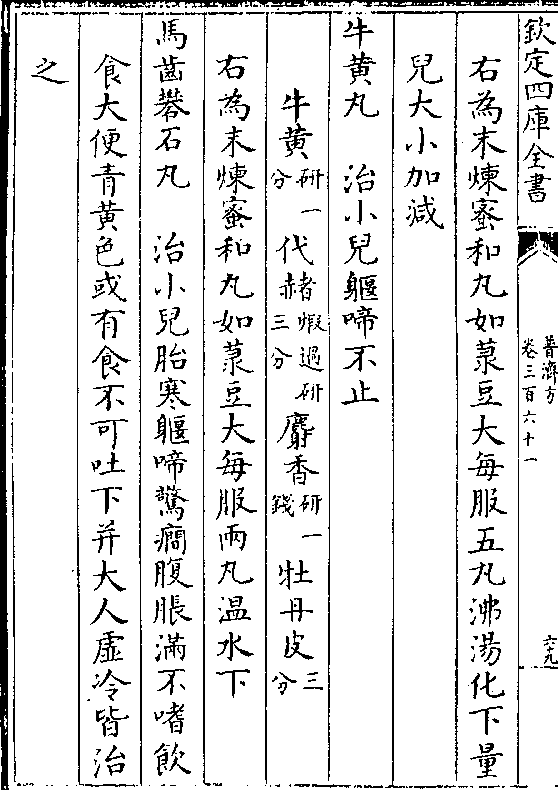 欽定四庫全書
普濟方
卷三百六十一
六十九
右為末煉蜜和丸如菉豆大每服五丸沸湯化下量
兒大小加減
牛黄丸 治小兒軀啼不止
牛黄研一分 代赭煅過研三分 麝香研一錢 牡丹皮三分
右為末煉蜜和丸如菉豆大每服兩丸温水下
馬齒礬石丸 治小兒胎寒軀啼驚癇腹脹滿不嗜飲
食大便青黄色或有食不可吐下并大人虛冷皆治
之